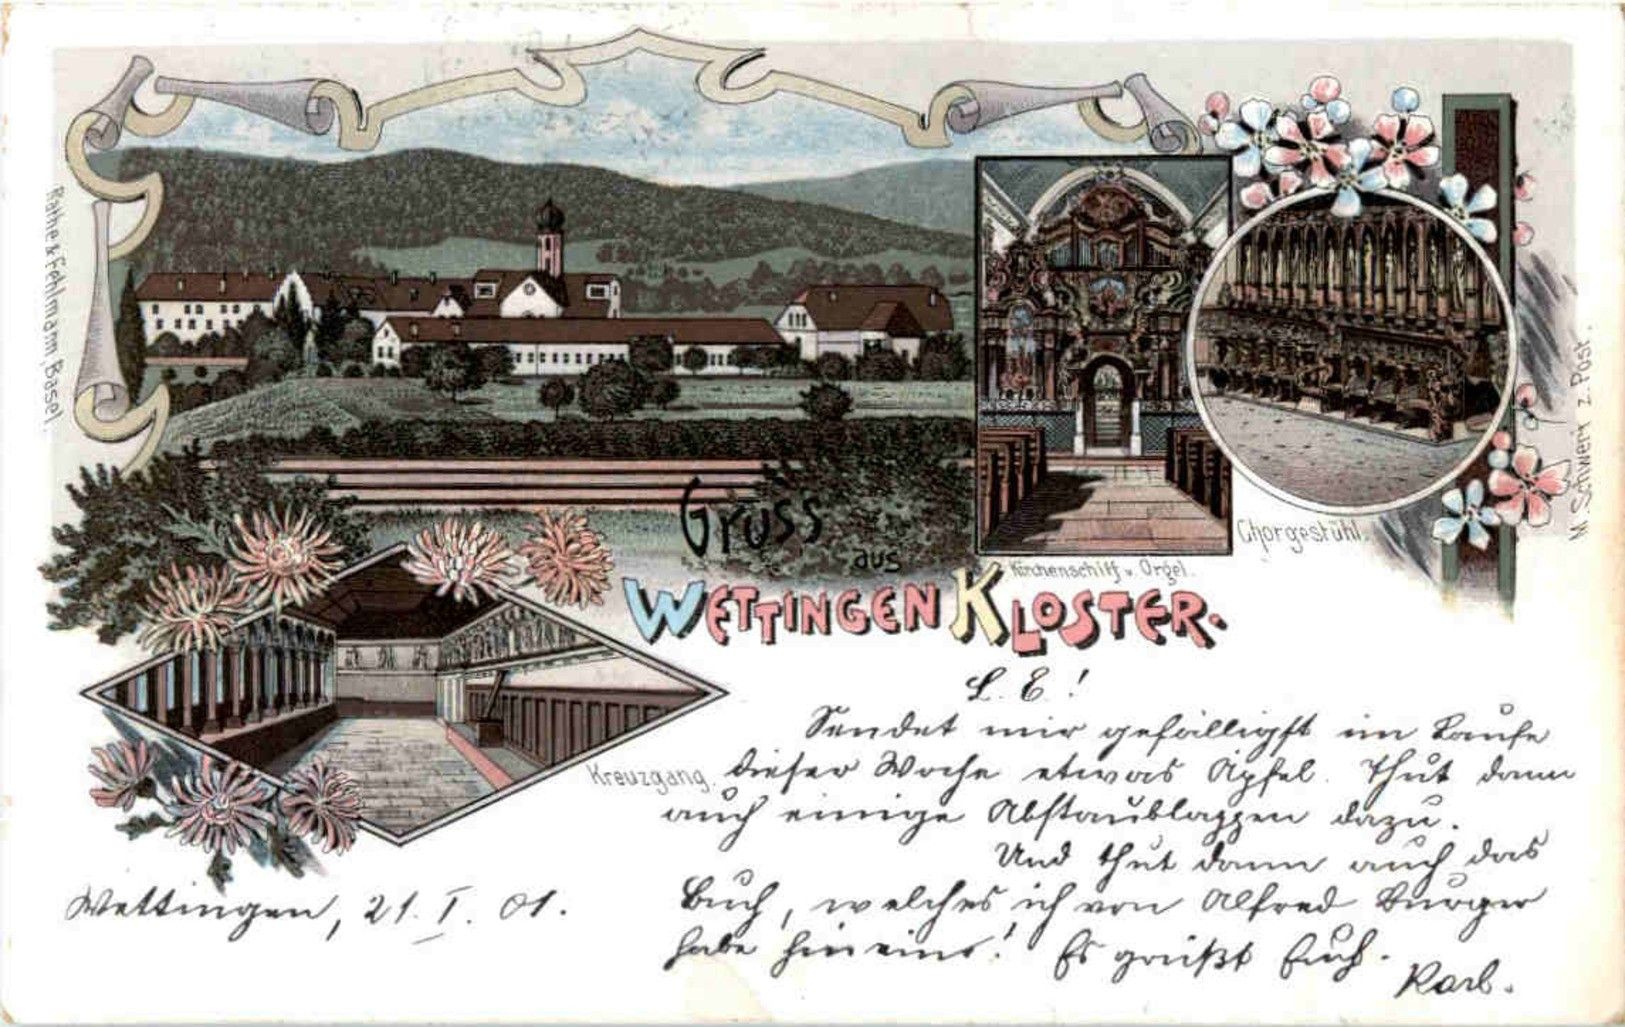 Rathe & Fehlmann Basel.
Gruss
aus
WETTINGEN KLOSTER.
Kirchenschiff u. Orgel.
Chorgestühl.
Kreuzgang.
z. Post.
L. E.!
Sendet mir gefälligst im Laufe
dieser Woche etwas Äpfel. Thut dann
auch einige Abstaublappen dazu.
Und thut dann auch das
Buch, welches ich von Alfred Burger
habe hinein! Es grüßt Euch.
Karl.
Wettingen, 21. I. 01.